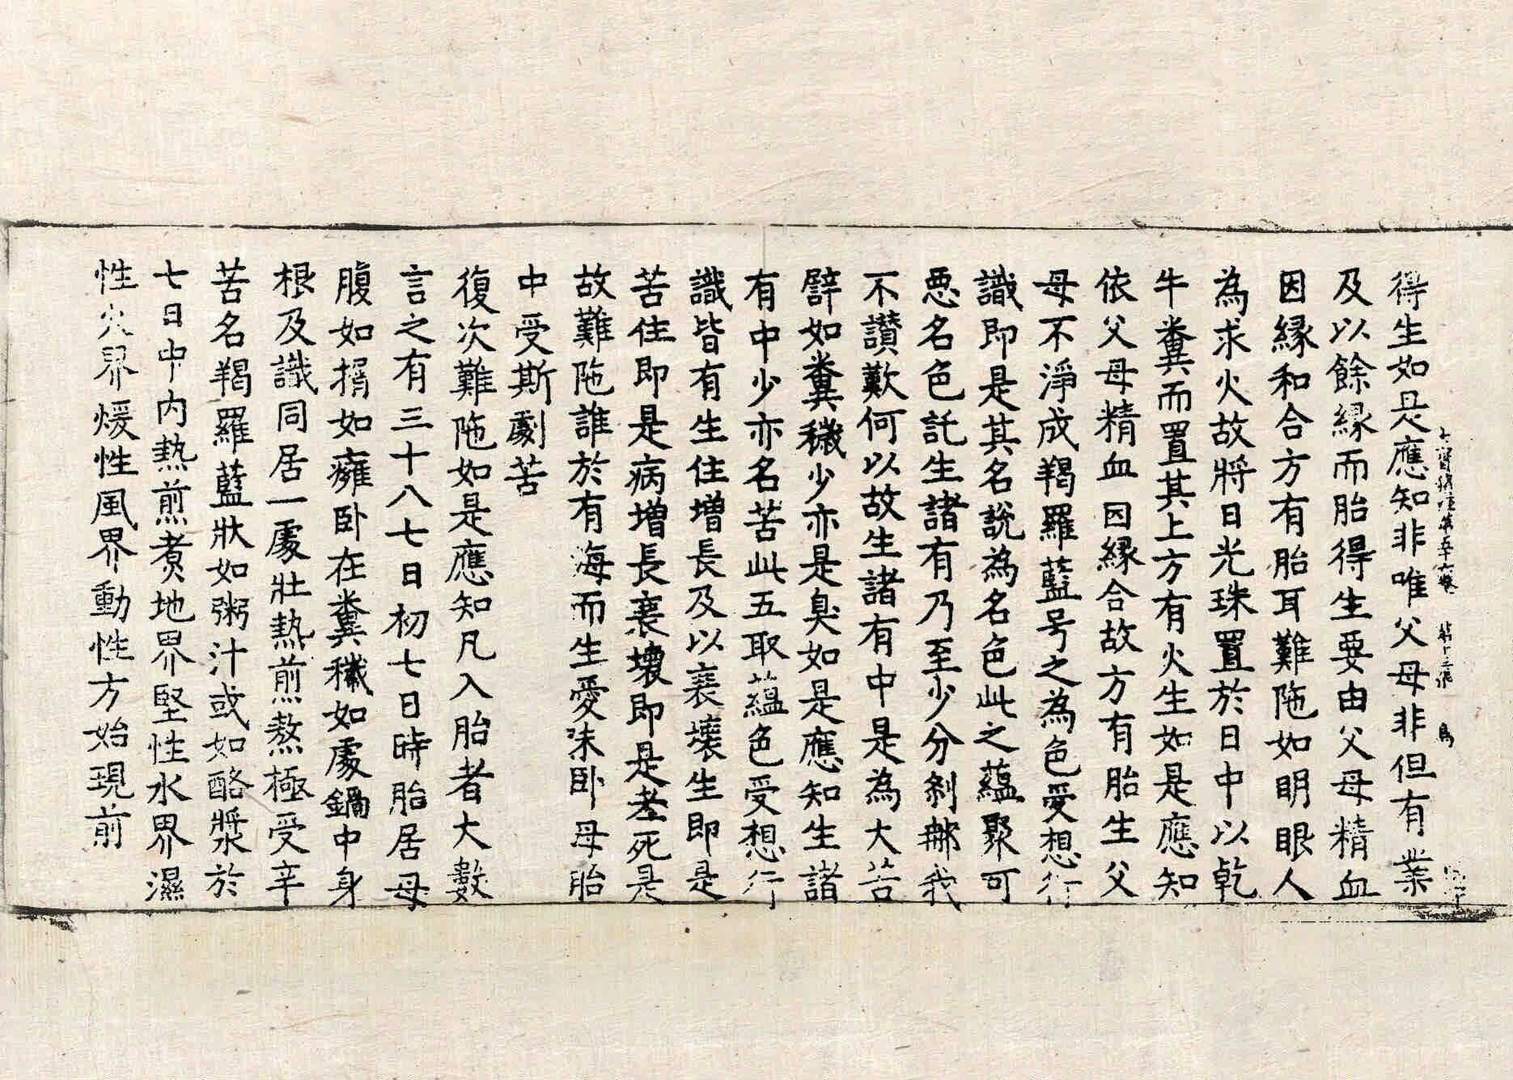 得生如是應知非唯父母非但有業
及以餘緣而胎得生要由父母精血
因緣和合方有胎耳難陁如明眼人
為求火故將日光珠置於日中以乾
牛糞而置其上方有火生如是應知
依父母精血因緣合故方有胎生父
母不淨成羯羅藍号之為色受想行
識即是其名說為名色此之蘊聚可
惡名色託生諸有乃至少分刹那我
不讃歎何以故生諸有中是為大苦
譬如糞穢少亦是臭如是應知生諸
有中少亦名苦此五取蘊色受想行
識皆有生住增長及以衰壞生即是
苦住即是病增長衰壞即是老死是
故難陁誰於有海而生愛味卧母胎
中受斯劇苦
復次難陁如是應知凡入胎者大數
言之有三十八七日初七日時胎居母
腹如榍如癰卧在糞穢如處鍋中身
根及識同居一處壯熱煎熬極受辛
苦名羯羅藍狀如粥汁或如酪漿於
七日中内熱煎煮地界堅性水界濕
性火界煖性風界動性方始現前